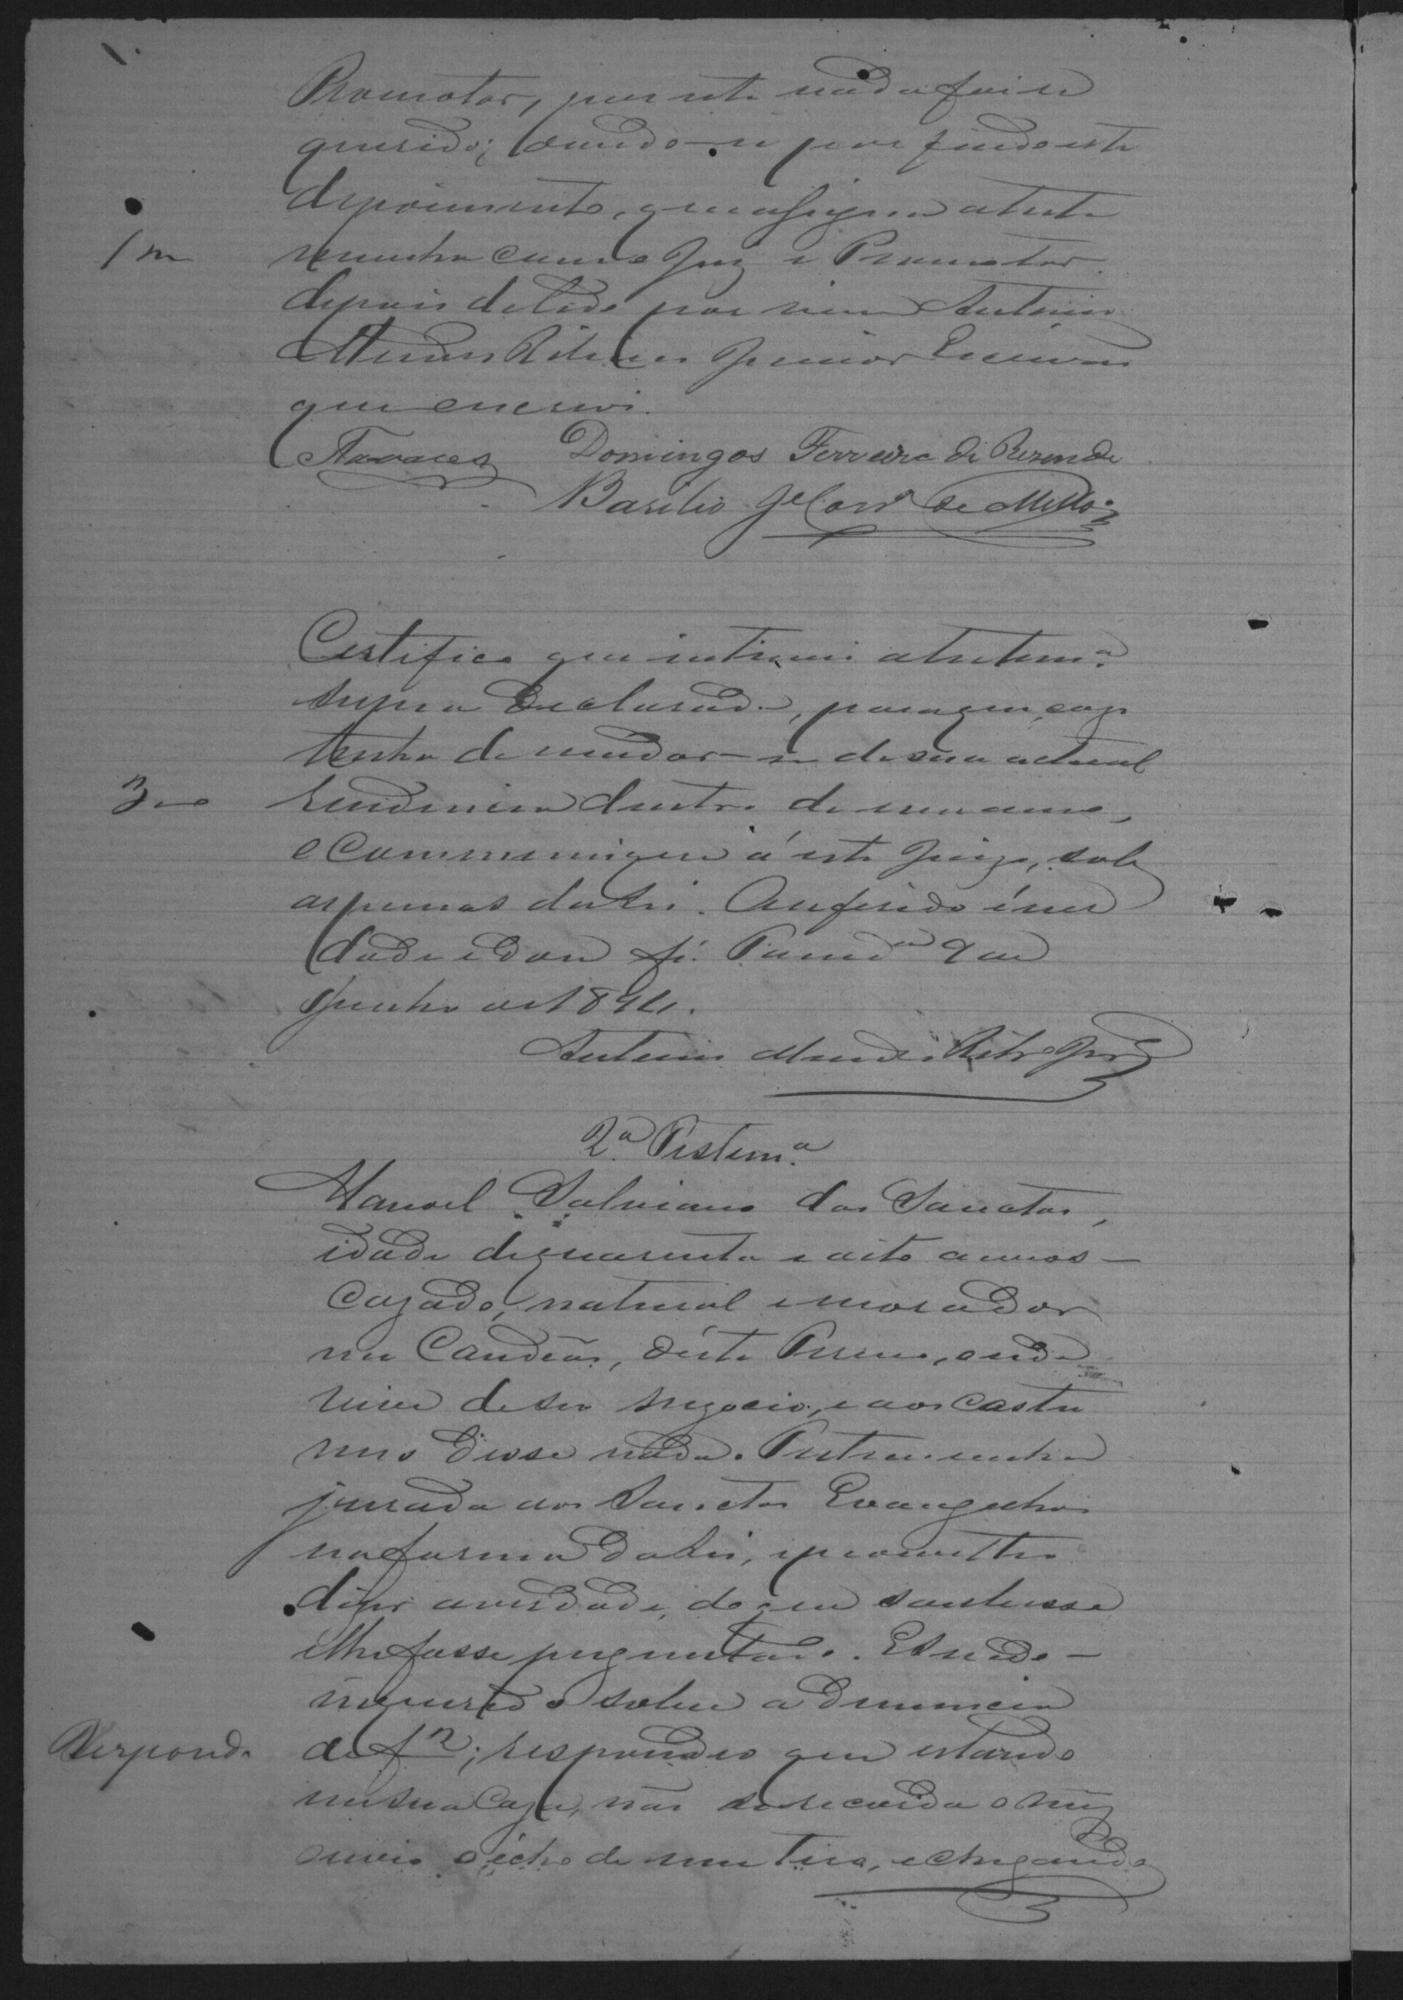 Promotor, por este nada foi re
querido; dando-se por findo este
depoimento, que assigna a teste
1m
munha com o Juiz e Promotor
depois de lido por mim Antonio
Mendes Ribeiro Junior Escrivão
que escrevi.
Tavares Domingos Ferreira de Rezende
Basilio de Mello
Certifico que intimei a testemª
supra declarada, para que, caso
tenha de mudar-se de sua actual
3
residencia dentro de um anno,
communique á este Juizo, sob
as penas da Lei. O referido é ver
dade e dou fé. 9 de
Junho de 1894.
Antonio Mendes Ribrº Jor
2ª Testemª
Manoel Salviano dos Sanctos,
idade de quarenta e oito annos -
cazado, natural e morador
nas Candêas, déste Termo, onde
vive de seu negocio, e aos costu
mes disse nada. Testemunha
jurada aos Sanctos Evangelhos
na forma da Lei, e prometteu
dizer a verdade, do que soubesse
e lhe fosse perguntado. E sendo -
inquerido sobre a denuncia
Responde
de f 2; respondeo que estando
em sua caza, não se recorda o mez
ouvio o écho de um tiro, e chegando